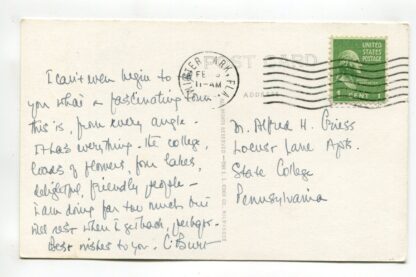 I can't even begin to
you what a fascinating town
this is, from every angle.
It has everything. The college,
loads of flowers, four lakes,
delightful, friendly people —
I am doing far too much but
will rest when I get back, perhaps.
Best wishes to you. C Burt
WINTER PARK, FLA.
FEB
11-AM
POST CARD
ADDRESS
UNITED
STATES
POSTAGE
1 CENT 1
Alfred H. Griess
Locust Lane Apts.
State College
Pennsylvania